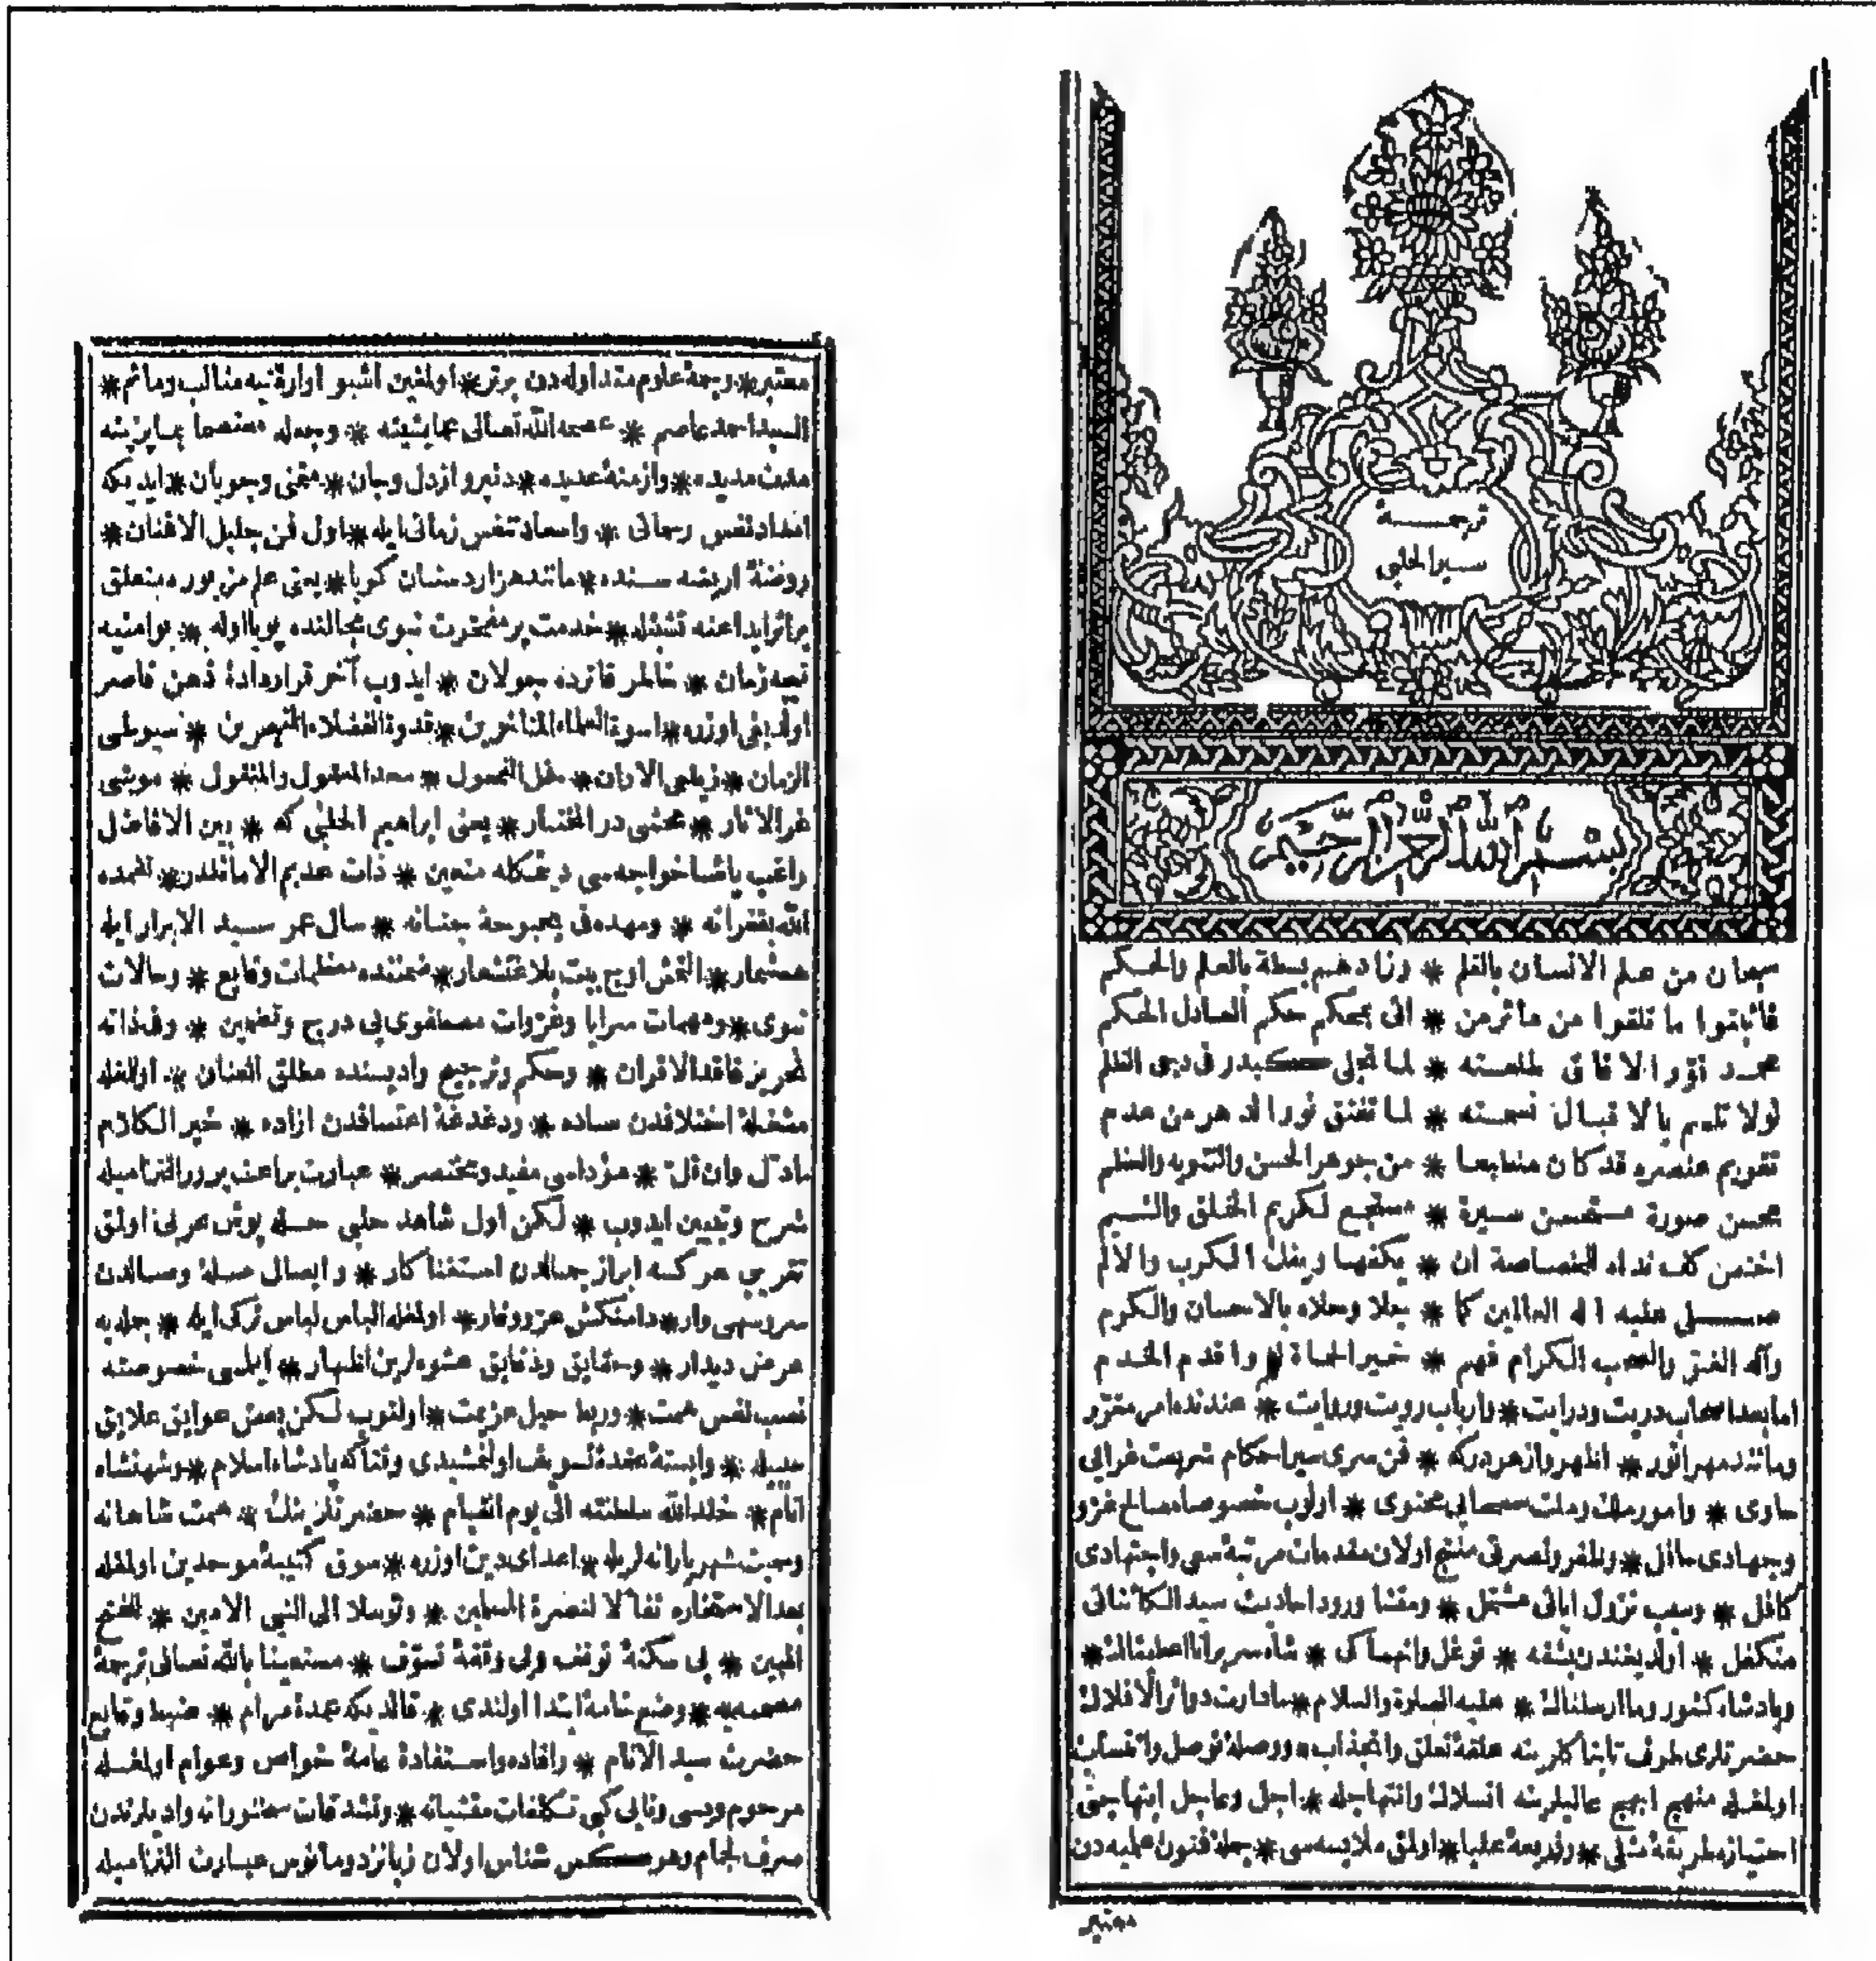 ترجمـــــهٔ
سـير الحلبى
بسم الله الرحمن الرحيم
سبحان من علم الانسان بالقلم * وزادهم بسطة بالعلم والحكم
فانبأتوا ما تلقوا من مآثر من * اتى بمحكم حكم العادل الحكم
محمد نوّر الآفاق طلعته * لما تجلى كبدر فى دجى الظلم
لولا تلم بالاقبال نسمته * لما تفتق نور الدهر من عدم
تقويم عنصره قد كان منطبعا * من جوهر الحسن والتنويه والعظم
محسن صورة مستحسن سيرة * مستجمع لكريم الخلق والشيم
كف نداه ان * يكفها ويفك الكرب والالم
صل عليه اله العالمين كما * بالاحسان والكرم
وآله الغر والصحب الكرام فهم * واقدم الخدم
اما بعد اصحاب دريت ودرايت * وارباب رويت وروايت * عندنده امر مقرّر
ومانند مهر انور * اظهر وازهر دركه * فن سرى سير احكام شريعت غرايى
حاوى * وامور ملك وملت سمحايى محتوى * اولوب خصوصا مصالح غزو
وجهادى * وظفر ونصرتى منتج اولان مقدمات مرتبهٔ سعى واجتهادى
كافل * وسبب نزول آياتى مشتمل * ومنشأ ورود احاديث سيد الكائناتى
متكفل * اولديغندن بشقه * توغل وانهماكى * شاه سرير انا اعطيناك *
وپادشاه كشور وما ارسلناك * عليه الصلوة والسلام * مادارت دوائر الافلاك
حضرتلرى طرف تابناكلرينه علقهٔ تعلق وانجذاب * ووصلهٔ توصل وانتساب
اولمغله منهج ابهج عاليلرينه انسلاك وانتهاجله * اجل وعاجل ابتهاجى
طريقهٔ مثلى * وذريعهٔ عليا * اولمق ملابسه‌سى * جملهٔ فنون علميه دن
معتبر
معتبر * وجملهٔ علوم متداوله دن برتر * اولمغين اشبو آوارهٔ تيه مثالب ومآثم *
السيد احمد عاصم * عصمه الله تعالى عما يشينه * وجعله معتصما بما يزينه
مدت مديده * وازمنهٔ عديده * دنبرو از دل وجان * متمنى وجويان * ايديكه
امداد نفس رحمانى * واسعاد تنفس زمانى ايله * اول فن جليل الافنان *
روضهٔ اريضه سنده * مانند هزار دستان كويا * يعنى علم مزبوره متعلق
بر اثر ابداعنه تشبثله * خدمت پر مفخرت نبوى مجالنده پويا اوله * بو امنيه
زمان * خاطر فاترده جولان * ايدوب آخر قرار دادهٔ ذهن قاصر
اولديغى اوزره * اسوة العلماء المتأخرين * قدوة الفضلاء المتبحرين * سيوطى
الزمان * زيلعى الاوان * المعقول والمنقول * موشى
غرر الآثار * محشى در المختار * يعنى ابراهيم الحلبى كه * بين الافاضل
راغب پاشا خواجه سى ديمكله متعين * ذات عديم الاماثلدر * تغمده
الله بغفرانه * ومهده فى بحبوحة جنانه * سال عمر سيد الابرار ايله
همشمار * التمش اوج بيت بلاغتشعار * ضمننده معظمات وقايع * وحالات
نبوى * ومهمات سرايا وغزوات مصطفوى يى درج وتضمين * وفى ذاته
نحرير فاقد الاقران * وحكم وترجيح واديسنده مطلق العنان * اولمغله
مشغلهٔ اختلافدن ساده * ودغدغهٔ اعتسافدن آزاده * خير الكلام
ما دلّ وان قلّ * مؤداسى مفيد ومختصر * عبارت براعت پرور التزاميله
شرح وتبيين ايدوب * لكن اول شاهد حلبى حله پوش عربى اولمق
تقريبى هر كسه ابراز جمالدن استغناكار * وايصال صلهٔ وصالدن
سرو سهى وار * دامنكش عز ووقار * اولمغله الباس لباس ترك ايله *
عرض ديدار * وحقايق ودقايق عشوه لرين اظهار * ايلمسى خصوصنه
نفس همت * وربط حبل عزيمت * اولنوب لكن بعض عوايق علايق
* وابستهٔ عقدهٔ تسويف اولمشيدى وقتاكه پادشاه اسلام * وشهنشاه
انام * خلد الله سلطنته الى يوم القيام * حضرتلرينك * همت شاهانه
وحميت شهريارانه لريله * اعداى دين اوزره * سوق كتيبهٔ موحدين اولمغله
بعد الاستخاره تفألا لنصرة المسلمين * وتوسلا الى النبى الامين * للفتح
المبين * بى سكتهٔ توقف وبى وقفهٔ تسوّف * مستعينا بالله تعالى ترجمهٔ
* وضع خامهٔ ابتدا اولندى * قالديكه عمدهٔ مرام * ضبط وقايع
حضرت سيد الانام * وافاده واستفادهٔ عامهٔ خواص وعوام اولمغله
مرحوم ويسى ونابى كبى تكلفات منشيانه * وتشدقات واديلرندن
صرف لجام وهر كس شناس اولان زبانزد ومأنوس عبارت التزاميله